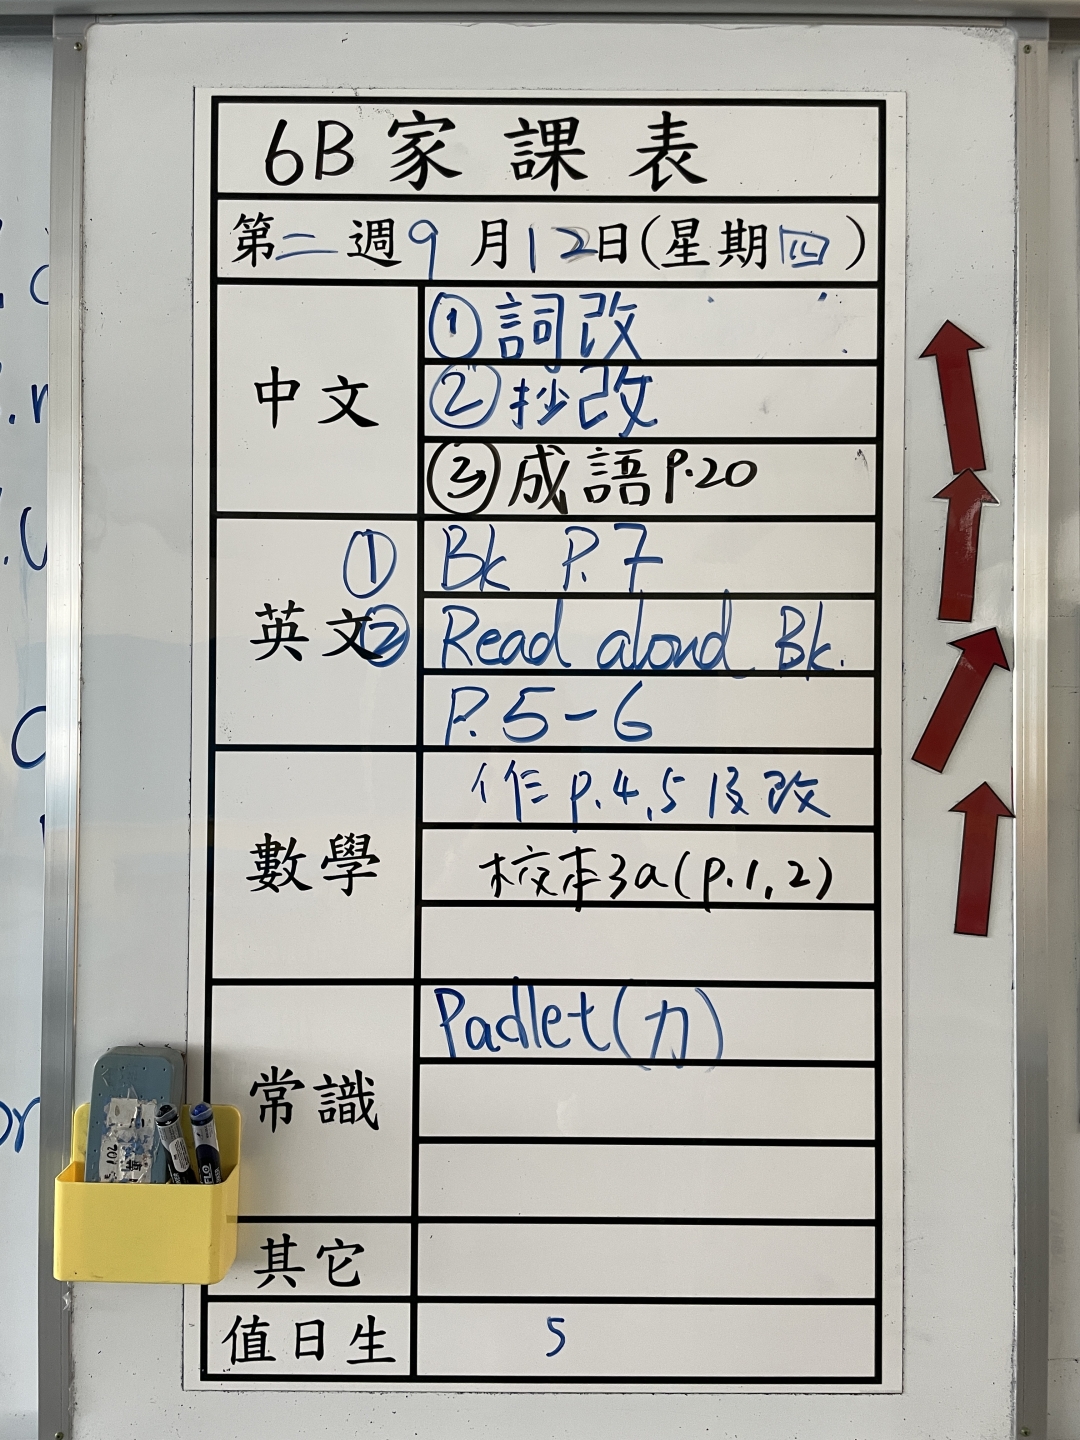 6B家課表
第二週9月12日(星期四)
中文
①詞改
②抄改
③成語P.20
英文
① Bk P.7
② Read aloud Bk.
P.5-6
數學
作p.4,5及改
校本3a(p.1,2)
常識
Padlet(力)
其它
值日生
5